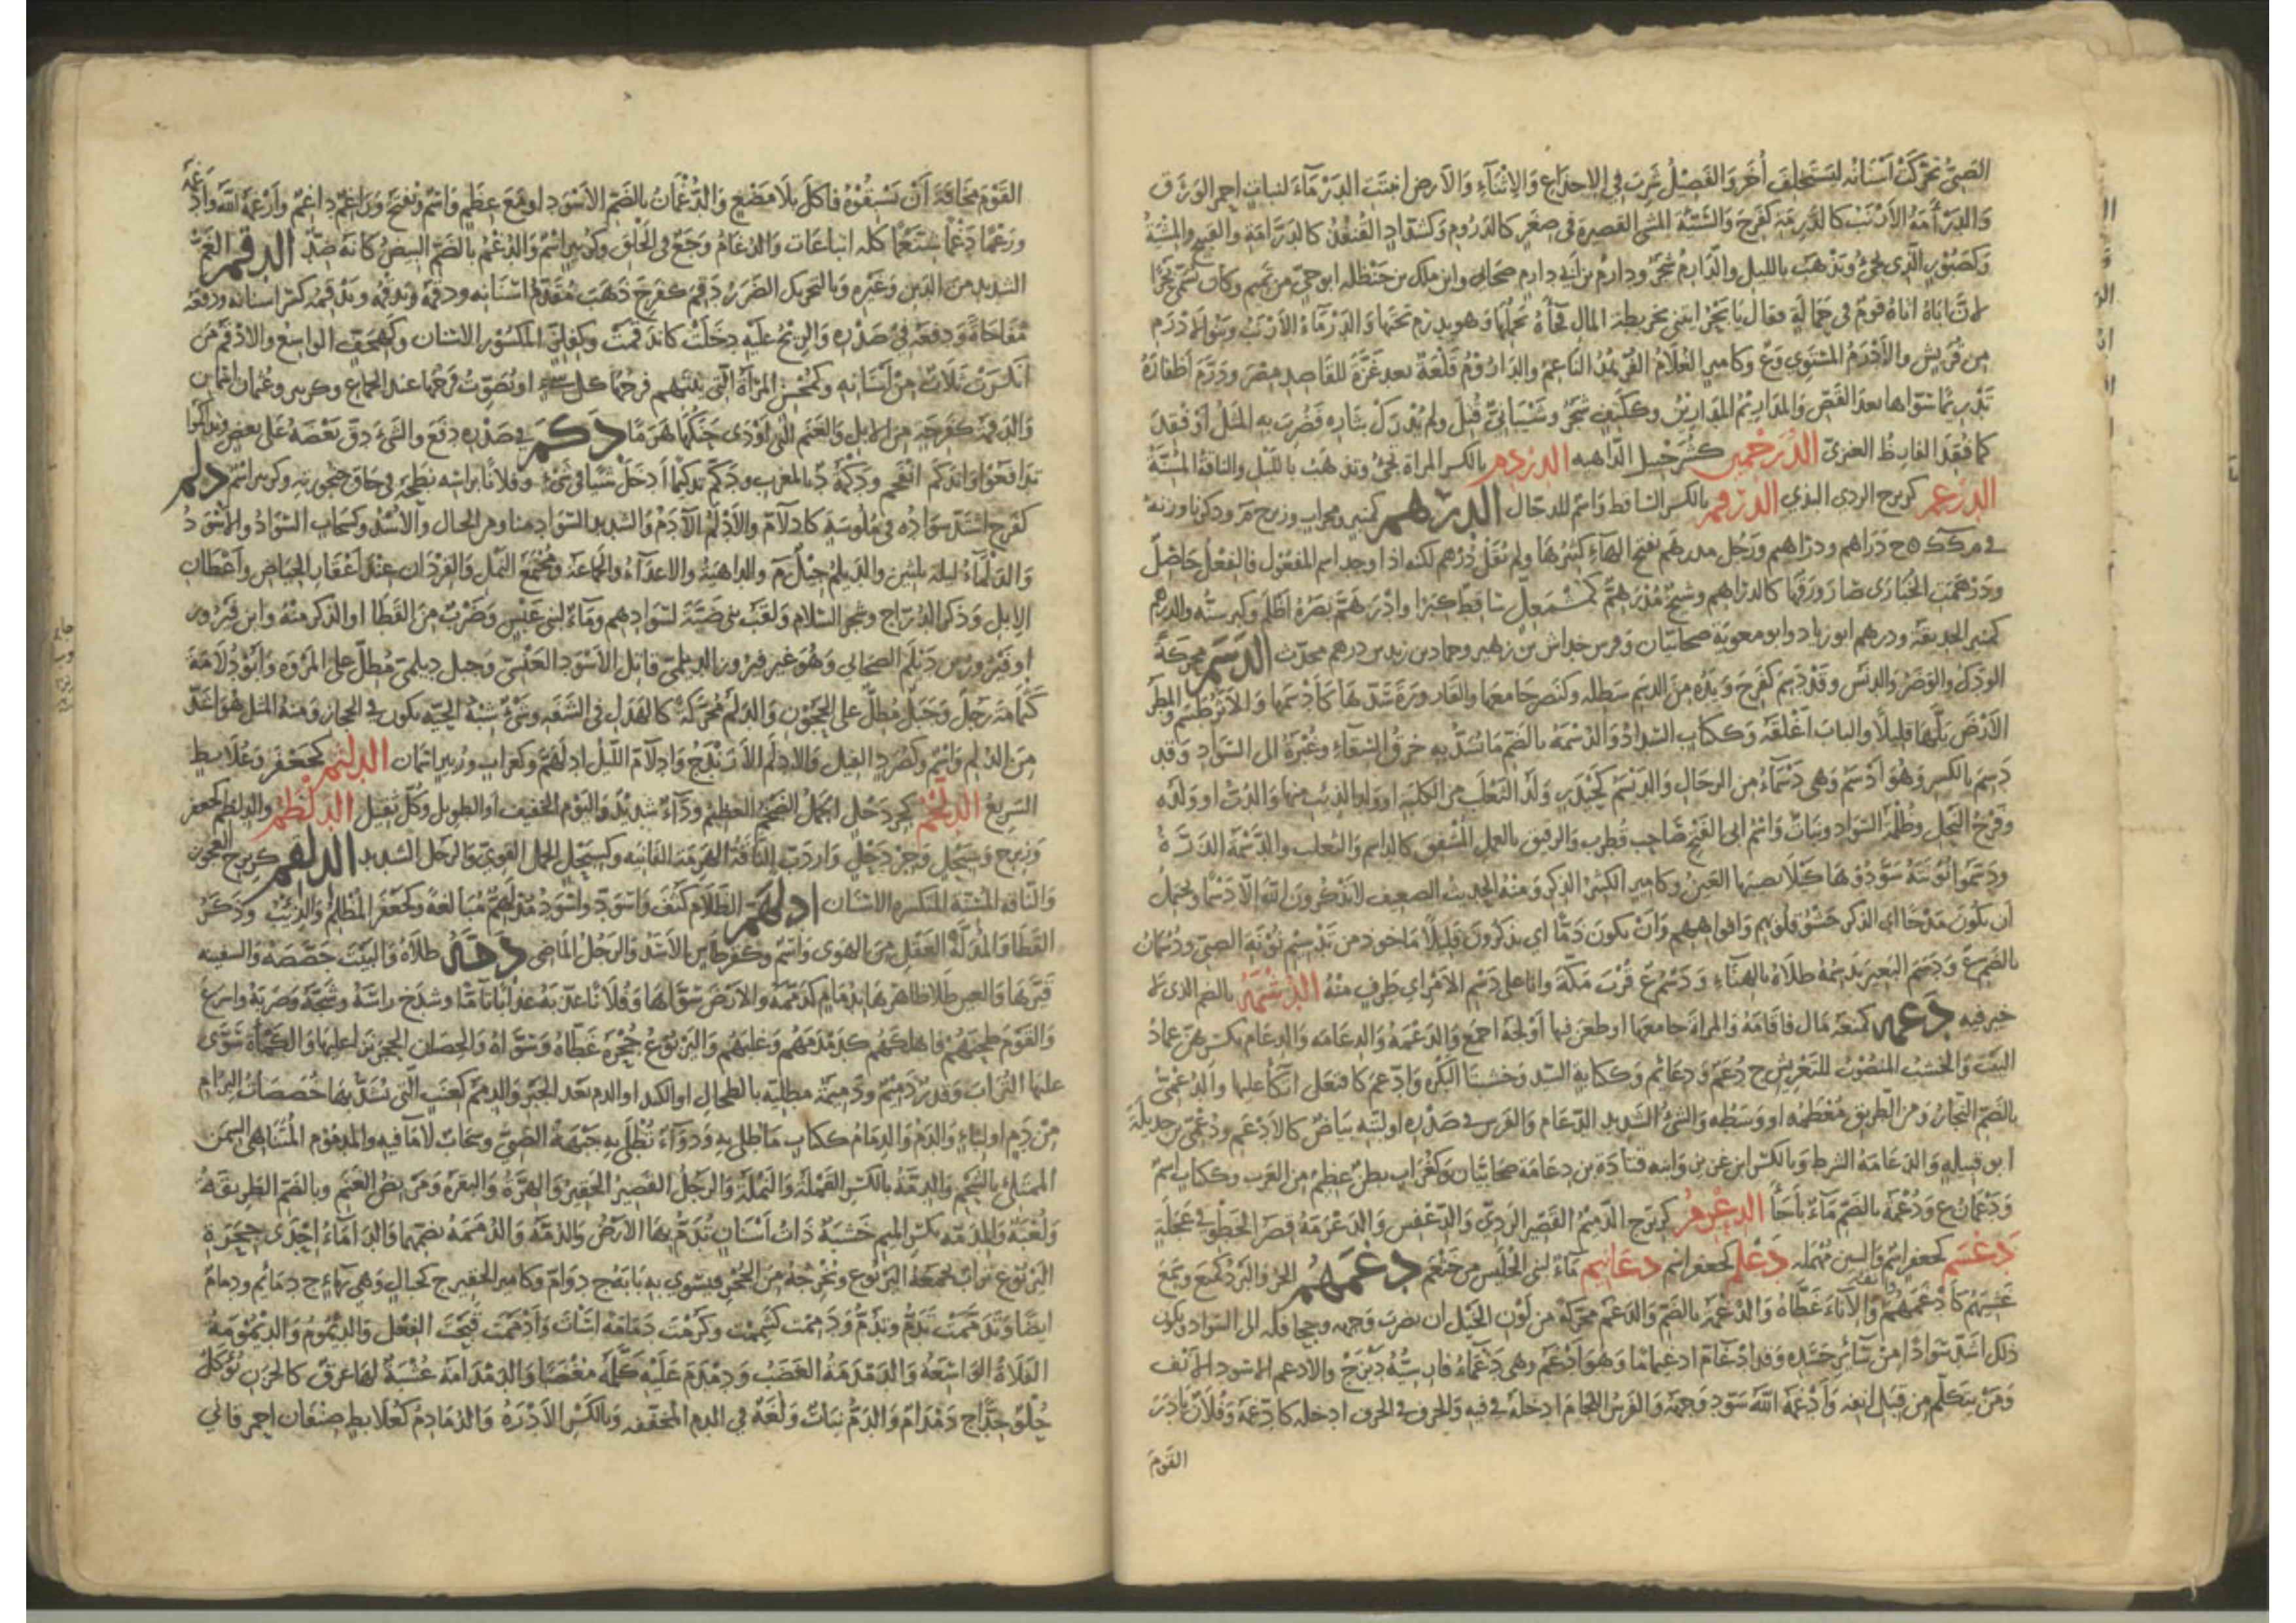 الصبي تحركت أسنانه ليستخلف أخر والفصيل شرب في الاجذاع والاثناء والارض انبتت الدرماء لنبات احمر الورق
والدرامة الارنب كالدرمة كفرحة والسيئة المشي القصيرة في صغر كالدروم وكشداد القنفذ كالدرامة والقبيح والمشية
وكصبور الذي يجئ ويذهب بالليل والدارم شجر ودارم بن ابي دارم صحابي وابن ملك بن حنظلة ابو حي من تميم وكان يسمى بحرا
لان اباه اتاه قوم في حمالة فقال يا بحر ايتني بخريطة المال فجاءه يحملها وهو يدرم تحتها والدرماء الارنب وبنو الادرم
من قريش والادرم المستوي وع وكامير الغلام الفرهد الناعم والداروم قلعة بعد غزة للقاصد مصر ودرم أظفاره
تدريما سواها بعد القص وككتف شجر وشيباني قتل ولم يدرك بثاره فضرب به المثل او فقد
كما فقد القارظ العنزي الدرخمين كشرحبيل الداهيه الدردم بالكسر المراة تجئ وتذهب بالليل والناقة المسنة
الدرعم كزبرج الردي البذي الدرقم بالكسر الساقط واسم للدجال الدرهم كمنبر ومحراب وزبرج م وذكر وزنه
في م ك ك ج دراهم ودراهيم ورجل مدرهم بفتح الهاء كثيرها ولم نقل درهم لكنه اذا وجد اسم المفعول فالفعل حاصل
ودرهمت الخبازى صار ورقها كالدراهم وشيخ مدرهم كمشمعل ساقط كبرا وادرهم بصره اظلم وكبر سنه والدرهم
كمنبر الحديقة ودرهم ابو زياد وابو معوية صحابيان وفرس خداش بن زهير وحماد بن زيد بن درهم محدث الدسم محركة
الودك والوضر والدنس وقد دسم كفرح ويده من الدسم سطله وكنصر جامعها والقارورة سدها كادسمها والاثر طسم والمطر
الارض بلها قليلا والباب اغلقه وككتاب السداد والدسمة بالضم ما تسد به خرق السقاء وغبرة الى السواد وقد
دسم بالكسر وهو ادسم وهي دسماء من الرجال والديسم كحيدر ولد الثعلب من الكلبه او ولد الذئب منها والدب او ولده
وفرخ النحل وظلمة السواد ونبات واسم ابي الفتح صاحب قطرب والرفيق بالعمل المشفق كالداسم والثعلب والديسمة الذرة
ودسموا نونته سودوها كيلا تصيبها العين وكامير الكثير الذكر ومنه الحديث الضعيف لا يذكرون الله الا دسما ويحتمل
ان يكون مدحا اي الذكر حشو قلوبهم وافواههم وان يكون ذما اي يذكرون قليلا ماخوذ من تدسيم نونة الصبي ودسمان
بالضم ع ودسم البعير يدسمه طلاه بالهناء ودسم ع قرب مكة وانا على دسم الامر اي طرف منه الدشمة بالضم الذي لا
خير فيه دعمه كمنعه مال فاقامه والمراة جامعها او طعن فيها او لجه اجمع والدعمة والدعامه والدعام بكسرهن عماد
البيت والخشب المنصوب للتعريش ج دعم ودعائم وككتابة السيد وخشبتا البكرة وادعم كافتعل اتكأ عليها والدعمي
بالضم النجار ومن الطريق معظمه او وسطه والشئ الشديد الدعام والفرس في صدره او لبته بياض كالادعم ودعمي بن جديلة
ابو قبيلة والدعامة الشرط وبالكسر ابن غزية وابنه قتادة بن دعامة صحابيان وكغراب بطن عظيم من العرب وككتاب اسم
ودعمان ع ودعمة بالضم ماء باجأ الدعرم كزبرج الدميم القصير الردي والدعفس والدعرمة قصر الخطو في عجلة
دعسم كجعفر اسم والسين مهمله دعلم كجعفر اسم دعانيم ماء لبني الحليس من خثعم دغمهم الحر والبرد كمنع وسمع
غشيهم كادغمهم والاناء غطاه والدغمة بالضم والدغم محركة من لون الخيل ان يضرب وجهه وجحافله الى السواد ويكون
ذلك اشد سوادا من سائر جسده وقد ادغام ادغيماما وهو ادغم وهي دغماء فارسيته ديزج والادغم الاسود الانف
ومن يتكلم من قبل انفه وادغمه الله سود وجهه والفرس اللجام ادخله في فيه والحرف في الحرف ادخله كادغمه وفلان بادر
القوم
القوم مخافة ان يسبقوه فاكل بلا مضغ والدغمان بالضم الاسود او مع عظم واسم ويفتح وراغم داغم وارغمه الله وادغمه
ورغما دغما شنغما كله اتباعات والدغام وجع في الحلق وكزبير اسم والدغم بالضم البيض كانه ضد الدقم الغم
الشديد من الدين وغيره وبالتحريك الضرر دقم كفرح ذهب مقدم اسنانه ودقمه يدقمه ويدقمه كسر اسنانه ودفعه
مفاجاة ودفعه في صدره والريح عليه دخلت كاندقمت وكفلز المكسور الاسنان وكهجف الواسع والادقم من
انكسرت ثلاث من أسنانه وكمحسن المرأة التي يلتهم فرجها كل شئ او يصوت فرجها عند الجماع وكزبير وعثمان اسمان
والدقمة كفرحة من الابل والغنم التي اودى حنكها هرما دكم في صدره دفع والشئ دق بعضه على بعض وتداكموا
تدافعوا واندكم انقحم ودكمة د بالمغرب ودكم تدكيما ادخل شيئا في شئ وفلانا براسه نطحه في حاق حنجرته وكزبير اسم دلم
كفرح اشتد سواده في ملوسة كادلام والادلم الآدم والشديد السواد منا ومن الجبال والاسد وكسحاب السواد والاسود
والدلماء ليلة ثلثين والديلم جيل م والداهية والاعداء والجماعة ومجتمع النمل والقردان عند أعقاب الحياض وأعطان
الابل وذكر الدراج وشجر السلام ولقب بني ضبة لسوادهم وماء لبني عبس وضرب من القطا او الذكر منه وابن فيروز
او فيروز بن ديلم الصحابي وهو غير فيروز الديلمي قاتل الاسود العنسي وجبل ديلمي مطل على المروة وابو دلامة
كثمامة رجل وجبل مطل على الحجون والدلم محركة كالهدل في الشفه وشئ شبه الحية يكون في الحجاز ومنه المثل هو اشد
من الدلم واسم وكصرد الفيل والادلم الارندج وادلام الليل ادلهم وكغراب وزبير اسمان الدلثم كجعفر وعلابط
السريع الدلخم كجردحل الجمل الضخم العظيم وداء شديد والنوم الخفيف او الطويل وكل ثقيل الدلظم والدلظم كجعفر
وزبرج وسبحل وجردحل واردب الناقة الهرمة الفانيه وكسبحل الجمل القوي والرجل الشديد الدلقم كزبرج العجوز
والناقة المسنة المنكسرة الاسنان ادلهم الظلام كثف واسود واسود مدلهم مبالغة وكجعفر المظلم والذئب وذكر
القطا والمدله العقل من الهوى واسم وكقرطاس الاسد والرجل الماضي دمه طلاه والبيت جصصه والسفينه
قيرها والعين طلا ظاهرها بدمام كدممه والارض سواها وفلانا عذبه عذابا تاما وشدخ راسه وشجه وضربه واسرع
والقوم طحنهم فاهلكهم كدمدمهم وعليهم واليربوع جحره غطاه وسواه والحصان الحجر نزا عليها والكمأة سوى
عليها التراب وقدر دميم ودميمة مطلية بالطحال او الكبد او الدم بعد الجبر والدمم كعنب التي تسد بها خصاصات البرام
من دم او لباء والدم والدمام ككتاب ما طلي به ودواء تطلى به جبهة الصبي وسحاب لا ما فيه والمدموم المتناهي السمن
الممتلئ بالشحم والدمة بالكسر القملة والنملة والرجل القصير الحقير والهرة والبعرة ومربض الغنم وبالضم الطريقة
ولعبة والمدمة بكسر الميم خشبة ذات اسنان تدم بها الارض والدمة والدممة بضمهما والداماء احدى جحرة
اليربوع تراب يجمعه اليربوع ويخرجه من الجحر فيسوي به بابه ج دوام وكامير الحقير ج كجبال وهي بهاء ج دمائم ودمام
ايضا وقد دممت تدم وتدم ودممت كشممت وكرمت دمامة اسأت وادممت قبحت الفعل والديموم والديمومة
الفلاة الواسعة والدمدمة الغضب ودمدم عليه كلمه مغضبا والدمدامة عشبة لها عرق كالجزر تؤكل
حلو جدا ج دمدام والدم نبات ولغة في الدم المخففه وبالكسر الادرة والدمادم كعلابط صنفان احمر قاني